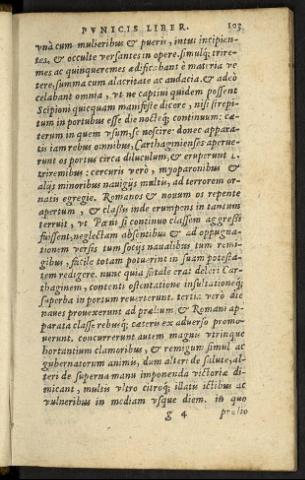 PVNICIS LIBER. 103
unà cum mulieribus & pueris, intus incipien-
tes, & occulte versantes in opere. simulq; trire-
mes ac quinqueremes ædificabant è materia ve
tere, summa cum alacritate ac audacia. & adeò
celabant omnia, ut ne captiui quidem possent
Scipioni quicquam manifeste dicere, nisi strepi-
tum in portubus esse die nocteq; continuum: cæ-
terum in quem usum, se nescire: donec appara-
tis iam rebus omnibus, Carthaginienses aperue-
runt os portus circa diluculum, & eruperunt L.
triremibus: cercuris verò, myoparonibus &
alijs minoribus nauigijs multis, ad terrorem or-
natis egregie. Romanos & nouum os repente
apertum, & classis inde erumpens in tantum
terruit, ut Pœni si continuo classem aggressi
fuissent, neglectam absentibus & ad oppugna-
tionem versis tum socijs naualibus tum remi-
gibus, facile totam potuerint in suam potestà-
tem redigere. nunc quia fatale erat deleri Car-
thaginem, contenti ostentatione insultationeq;
superba in portum reuerterunt. tertia verò die
naues prouexerunt ad prælium, & Romani ap-
parata classe rebusq; cæteris ex aduerso promo-
uerunt. concurrerunt autem magnis utrinque
hortantium clamoribus, & remigum simul ac
gubernatorum animis, dum alteri de salute, al-
teri de superna manu imponenda victoriæ di-
micant, multis ultro citroq; illatis ictibus ac
vulneribus in mediam usque diem. in quo
g 4 prælio